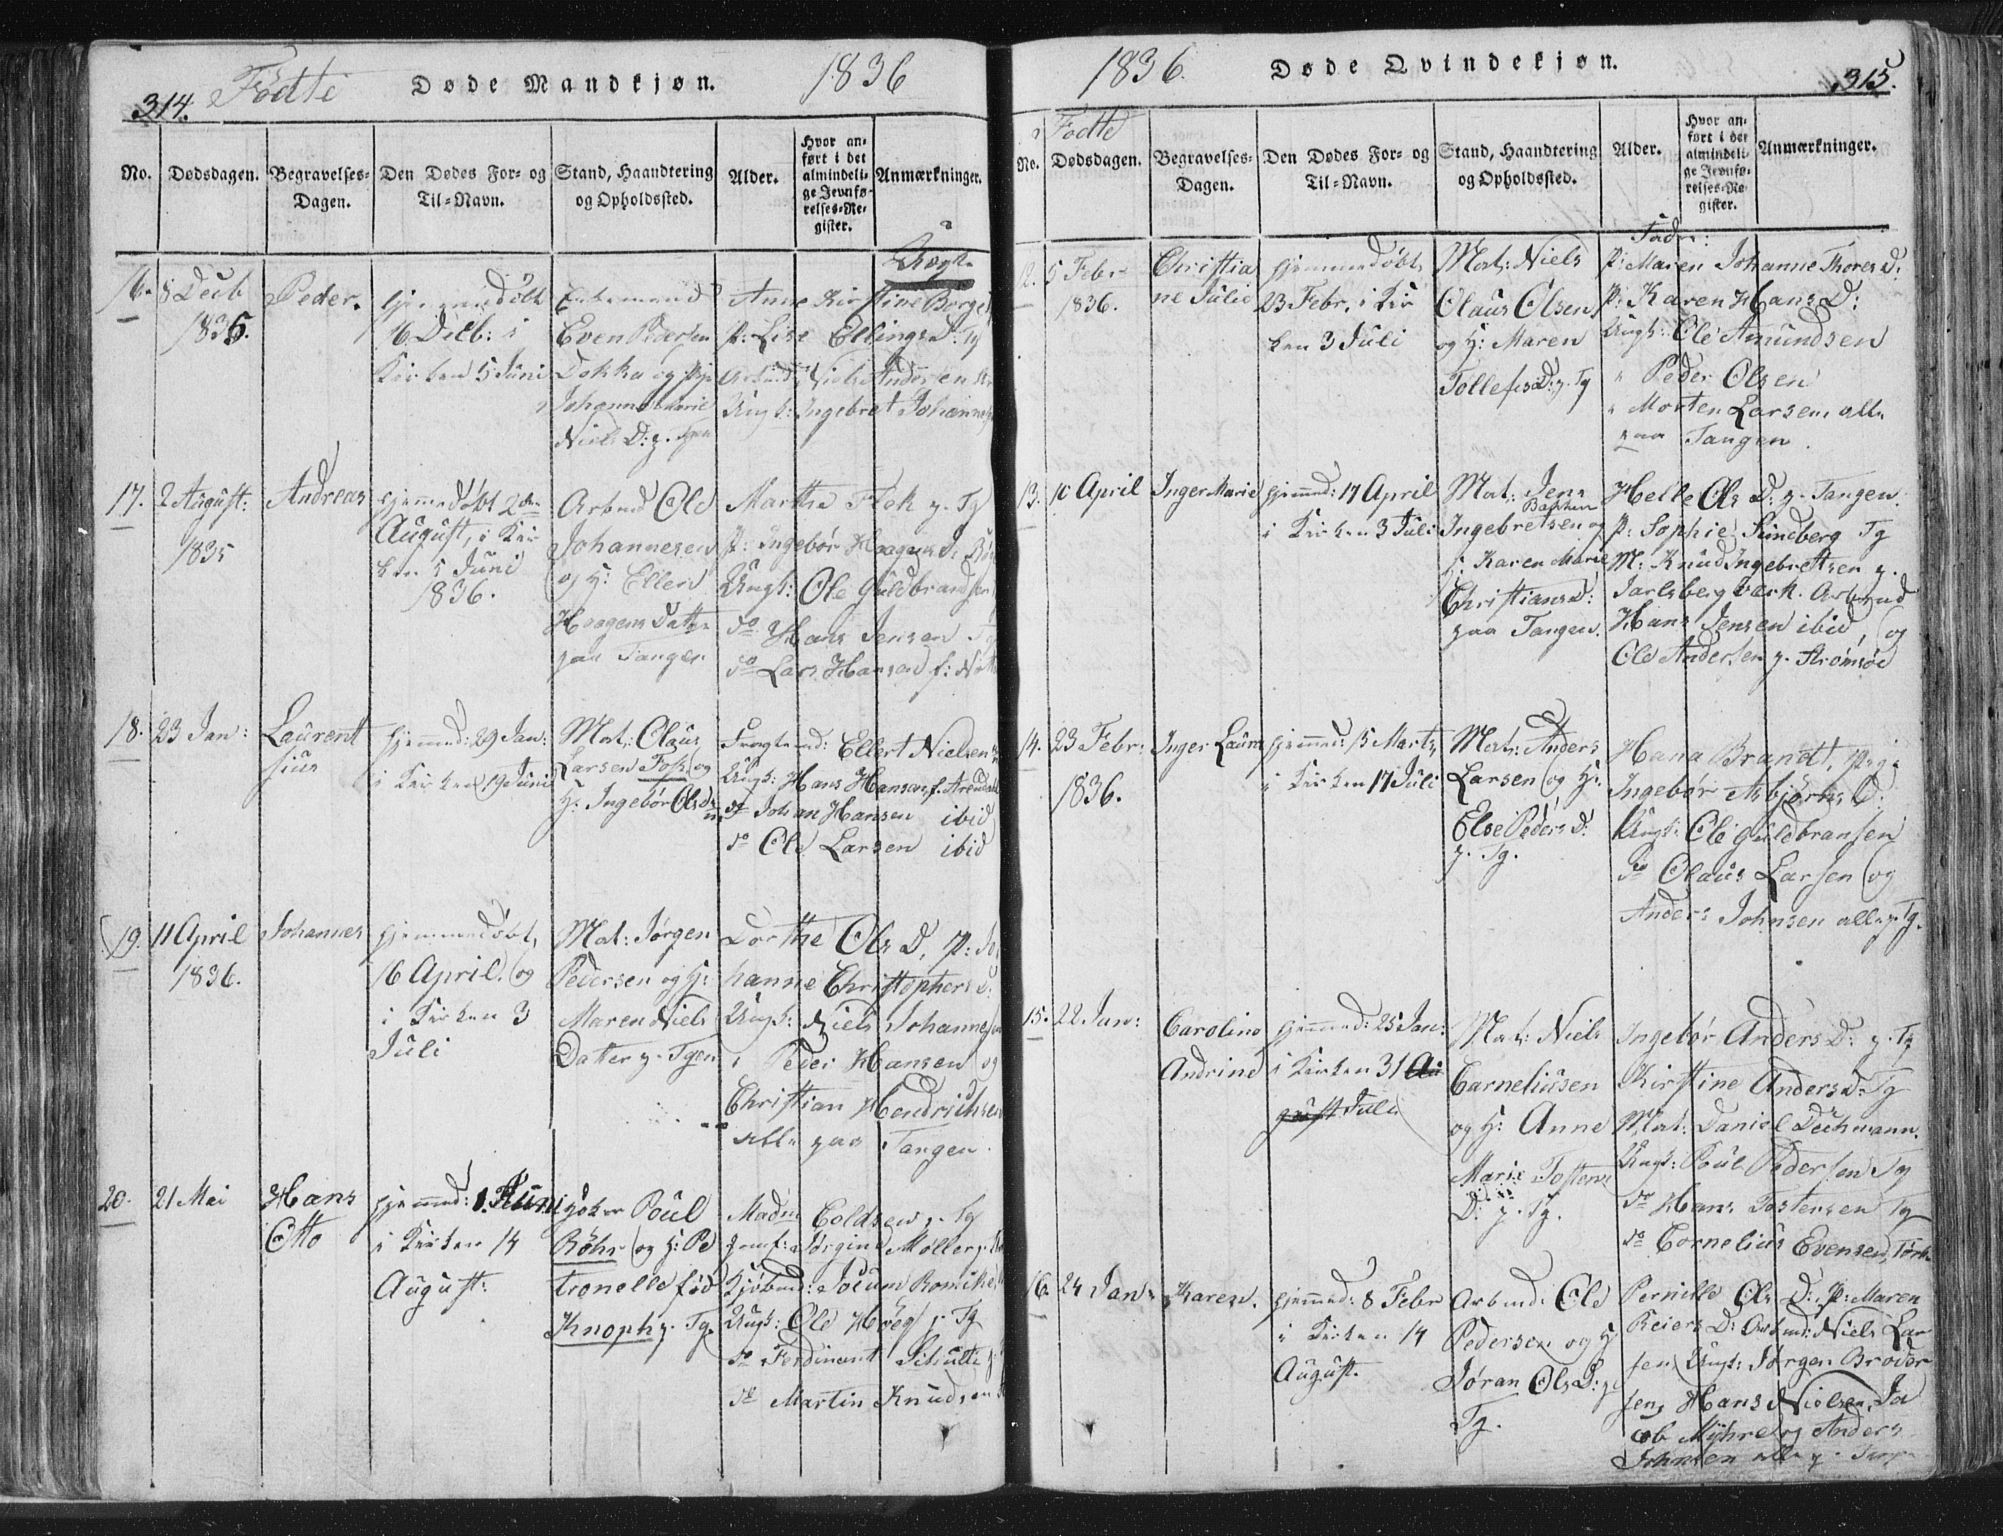 314. Födte Døde Mandkjøn. 1836
No. Dødsdagen. Begravelses-Dagen. Den Dødes For- og Til-Navn. Stand, Haandtering og Opholdssted. Alder. Hvor anført i det almindelige Jevnførelses-Register. Anmærkninger.
16. 8 Decb 1835. Peder.
hjemmedöbt
16 Decb: i
Kirken 5 Juni
Enkemand
Even Pedersen
Dokka og Pige
Johanne Marie
Niels D: p. Tgen
Anne Kirstine Borge
P: Lise Ellings D: Tg
Arbmd Niels Andersen
Ungk: Ingebret Johannes
17. 2 August: 1835 Andreas
hjemmedöbt 2den
August, i Kir
ken 5 Juni
1836.
Arbmd Ole
Johannesen
og H: Ellen
Haagens Datter
paa Tangen
Marthe Flek p. Tg
P: Ingebör Haagens D:
Ungk: Ole Guldbrandsen
do Hans Jensen Tg
do Lars Hansen f:
18. 23 Jan: Laurent
sius
hjemmed: 29 Jan:
i Kirken 19 Juni
Mat: Olaus
Larsen Fosk og
H: Ingebör Olsd:
Fragtmd: Ellert Nielsen
Ungk: Hans Hansen, f.
do Johan Hansen ibid
do Ole Larsen ibid
19. 11 April 1836. Johannes
hjemmedöbt,
16 April, og
i Kirken 3
Juli
Mat: Jørgen
Pedersen og H:
Maren Niels
Datter p. Tgen
Dorthe Ols D, P: Jo
hanne Christophers D:
Ungk: Niels Johannesen
" Peder Hansen og
Christian Hendrichsen
alle paa Tangen.
20. 21 Mai Hans
Otto
hjemmed: 1. Juni
i Kirken 14
August:
Poul
Röhr og H: Pe
tronelle föd
Knoph p. Tg.
Madm Coldsen p. Tg
Jomf: Jørgine Møller p.
Kjöbmd: Jocum Romcke
Ungk: Ole Höeg p. Tg
do Ferdinant Schulti
do Martin Knudsen
1836. Døde Qvindekjøn. 315.
Födte
No. Dødsdagen. Begravelses-Dagen. Den Dødes For- og Til-Navn. Stand, Haandtering og Opholdssted. Alder. Hvor anført i det almindelige Jevnførelses-Register. Anmærkninger.
12. 5 Febr 1836. Christia
ne Julie
hjemmedöbt,
23 Febr. i Kir
ken 3 Juli
Mat: Niels
Olaus Olsen
og H: Maren
Tollefs D: p. Tg
Fadr:
P: Maren Johanne Thores D:
P: Karen Hans D:
Ungk: Ole Amundsen
" Peder Olsen
" Morten Larsen, alle
paa Tangen.
13. 10 April Inger Marie
hjemmd: 17 April
i Kirken 3 Juli
Mat: Jens
Bakken
Ingebretsen og
H: Karen Marie
Christians D:
paa Tangen.
Helle Ols D: p. Tangen.
P: Sophie Sundberg Tg
M: Knud Ingebretsen p.
Jarlsberg værk. Arbmd
Hans Jensen ibid, og
Ole Andersen p. Strömsöe
14. 23 Febr: 1836. Inger Laura
hjemmed: 15 Marts,
i Kirken 17 Juli
Mat: Anders
Larsen og H:
Else Peders D:
p. Tg.
Hana Brandt, Pige
Ingebör Asbjörns D:
Ungk: Ole Guldbransen
do Olaus Larsen og
Anders Johnsen alle p. Tg.
15. 22 Jan: Caroline
Andrine
hjemmed: 25 Jan:
i Kirken 31 Au
gust Juli
Mat: Niels
Carneliusen
og H: Anne
Marie Tostens
D: p. Tg.
Ingebør Anders D: p. Tg
Kirstine Anders D: Tg
Mat: Daniel Dechmann.
Ungk: Poul Pedersen Tg
do Hans Tostensen Tg
do Cornelius Evensen,
16. 24 Jan: Karen.
hjemmed: 8 Febr
i Kirken 14
August.
Arbmd: Ole
Pedersen og H
Jöran Ols D: p
Tg.
Pernille Ols D:, P: Maren
Reiers D: Arbmd: Niels Lar
sen, Ungk: Jörgen Broder
sen, Hans Nielsen, Ja
cob Myhre og Anders
Johnsen alle p.